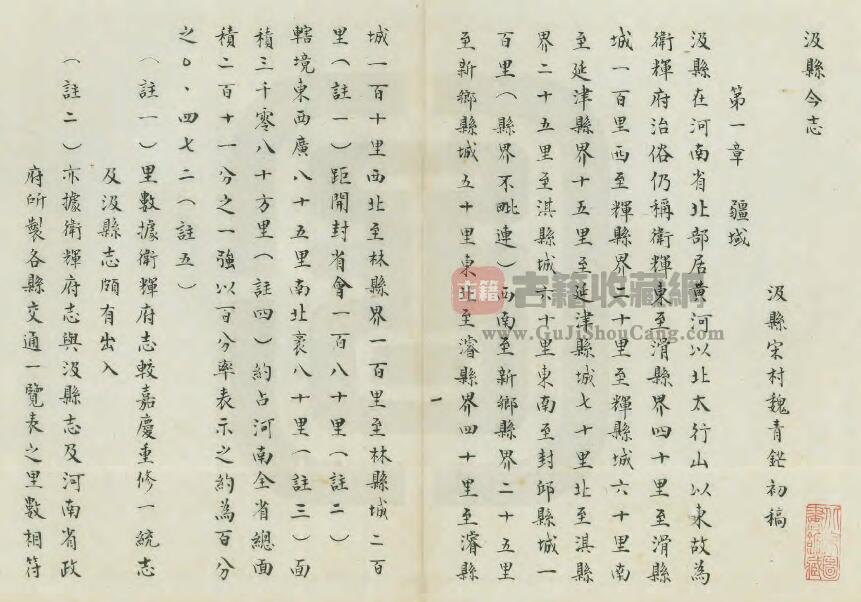 汲縣今志
汲縣宋村魏青鋩初稿
第一章　疆域
汲縣在河南省北部居黃河以北太行山以東故為
衛輝府治俗仍稱衛輝東至滑縣界四十里至滑縣
城一百里西至輝縣界二十里至輝縣城六十里南
至延津縣界十五里至延津縣城七十里北至淇縣
界二十五里至淇縣城六十里東南至封邱縣城一
百里（縣界不毗連）西南至新鄉縣界二十五里
至新鄉縣城五十里東北至濬縣界四十里至濬縣
一
城一百十里西北至林縣界一百里至林縣城二百
里（註一）距開封省會一百八十里（註二）
轄境東西廣八十五里南北袤八十里（註三）面
積三千零八十方里（註四）約占河南全省總面
積二百十一分之一強以百分率表示之約為百分
之〇．四七二（註五）
（註一）里數據衛輝府志較嘉慶重修一統志
及汲縣志頗有出入
（註二）亦據衛輝府志與汲縣志及河南省政
府所製各縣交通一覽表之里數相符
古籍
古籍收藏網
www.GuJiShouCang.com